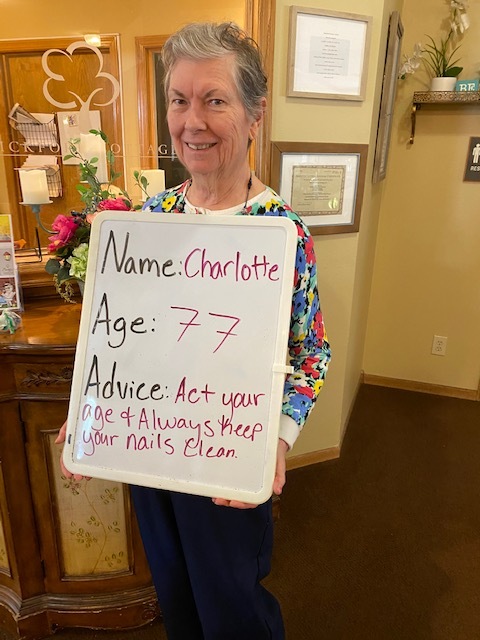 Name: Charlotte
Age: 77
Advice: Act your
age & Always keep
your nails clean.